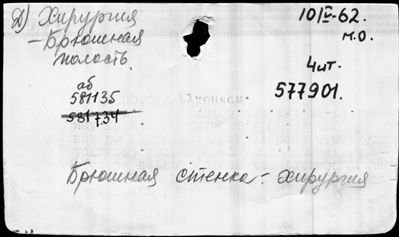 Д) Хирургия
10/V-62.
– Брюшная
м.о.
полость.
Чит.
аб
581135
577901.
581734
Брюшная стенка - хирургия